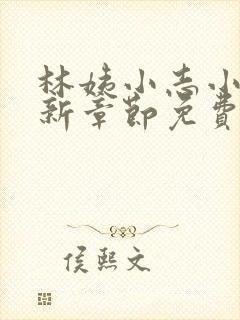 林姨小志小
新章節免費
侯熙文